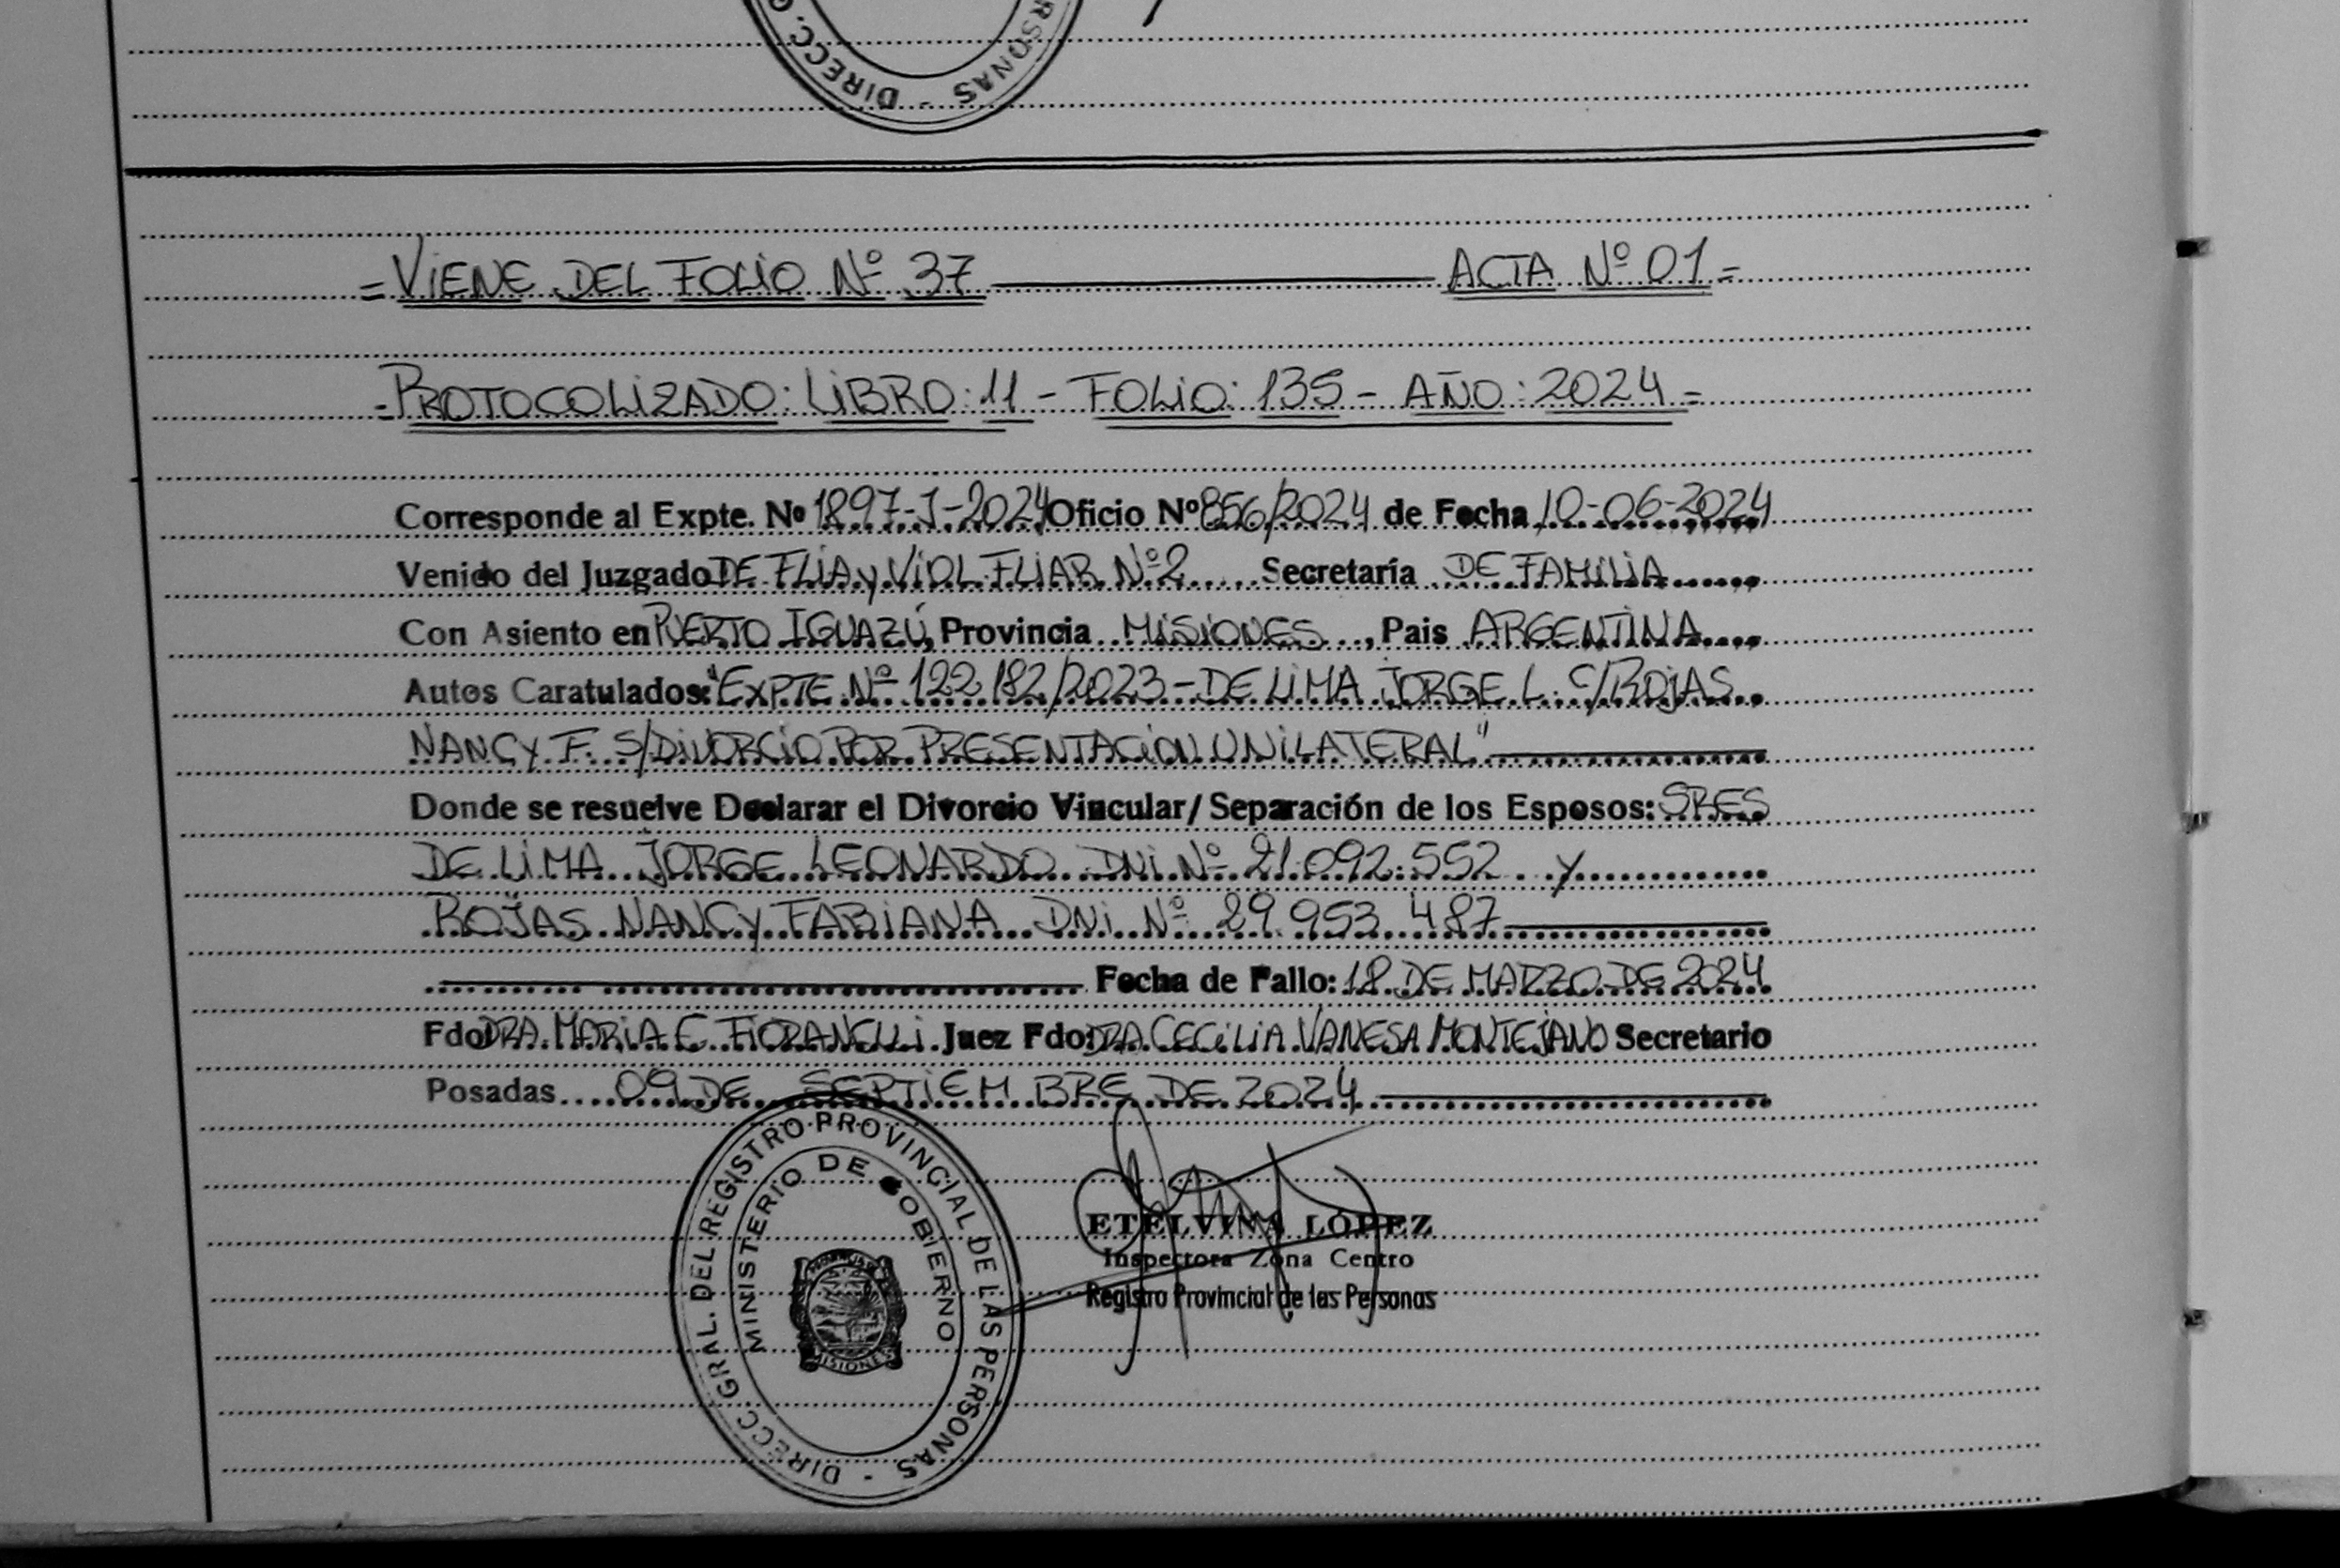 DIRECC. G
RSONAS -
=VIENE DEL FOLIO Nº 37 ACTA Nº 01=
=PROTOCOLIZADO: LIBRO: 11 - FOLIO: 135 - AÑO: 2024=
Corresponde al Expte. Nº 1897-J-2024 Oficio Nº 856/2024 de Fecha 10-06-2024
Venido del Juzgado DE FLIA y VIOL. FLIAR. Nº 2 Secretaría DE FAMILIA
Con Asiento en PUERTO IGUAZÚ, Provincia MISIONES, Pais ARGENTINA
Autos Caratulados: "EXPTE Nº 122182/2023 - DE LIMA JORGE L. C/ROJAS
NANCY F. S/DIVORCIO POR PRESENTACION UNILATERAL"
Donde se resuelve Declarar el Divorcio Vincular/Separación de los Esposos: SRES
DE LIMA JORGE LEONARDO DNI Nº 21.092.552 y
ROJAS NANCY FABIANA DNI Nº 29.953.487
Fecha de Fallo: 18 DE MARZO DE 2024
Fdo DRA. MARIA E. FIORANELLI Juez Fdo: DRA CECILIA VANESA MONTEJANO Secretario
Posadas 09 DE SEPTIEMBRE DE 2024
DIRECC. GRAL. DEL REGISTRO PROVINCIAL DE LAS PERSONAS -
MINISTERIO DE GOBIERNO
MISIONES
ETELVINA LOPEZ
Inspectora Zona Centro
Registro Provincial de las Personas